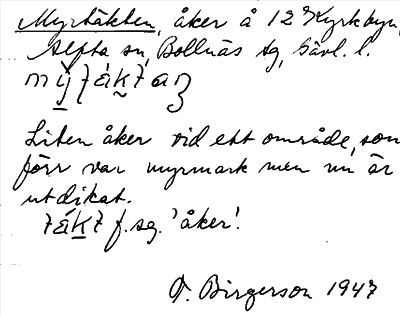 Myrtäkten, åker å 12 Kyrkbyn,
Alfta sn, Bollnäs tg, Gävl. l.
Liten åker vid ett område, som
förr var myrmark men nu är
utdikat.
f. sg. 'åker'.
T. Birgerson 1947